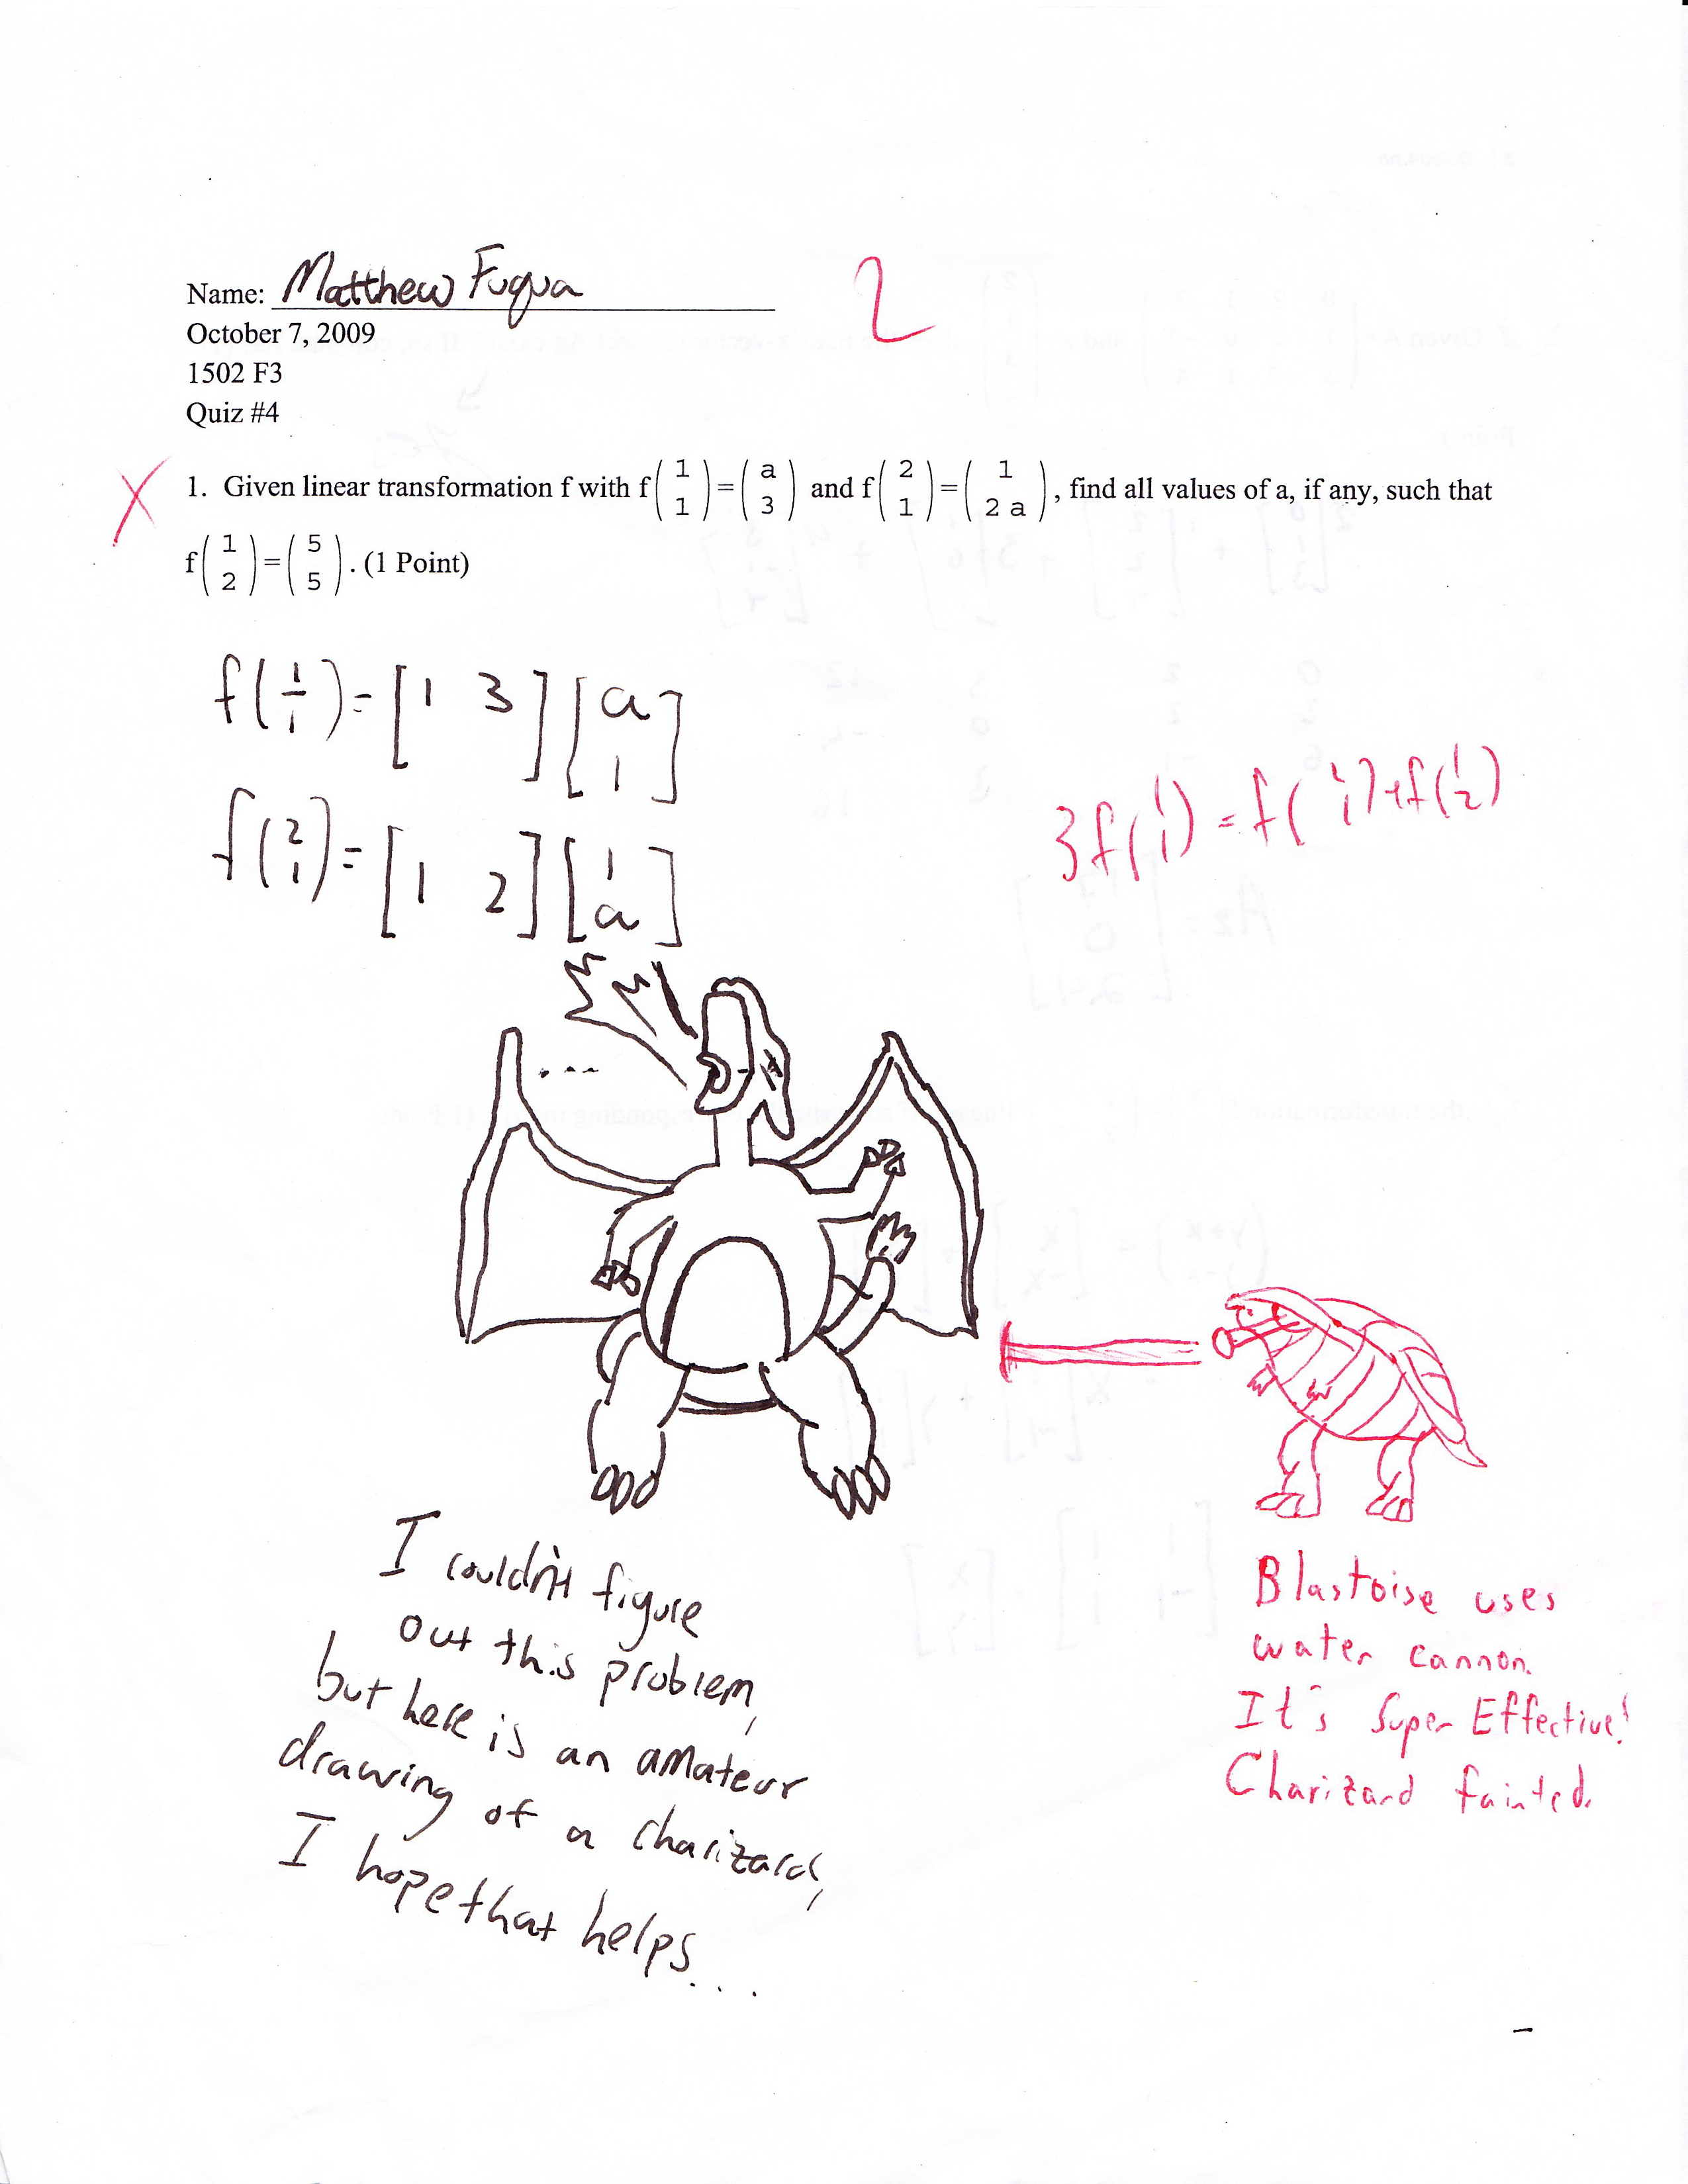 Name: Matthew Fuqua
2
October 7, 2009
1502 F3
Quiz #4
X 1. Given linear transformation f with f(1 1)=(a 3) and f(2 1)=(1 2 a), find all values of a, if any, such that
f(1 2)=(5 5). (1 Point)
f(1 1)=[1 3][a 1]
3f(1 1)=f(2 1)+f(1 2)
f(2 1)=[1 2][1 a]
...
I couldn't figure
out this problem,
but here is an amateur
drawing of a charizard,
I hope that helps....
Blastoise uses
water cannon.
It's Super Effective!
Charizard fainted.